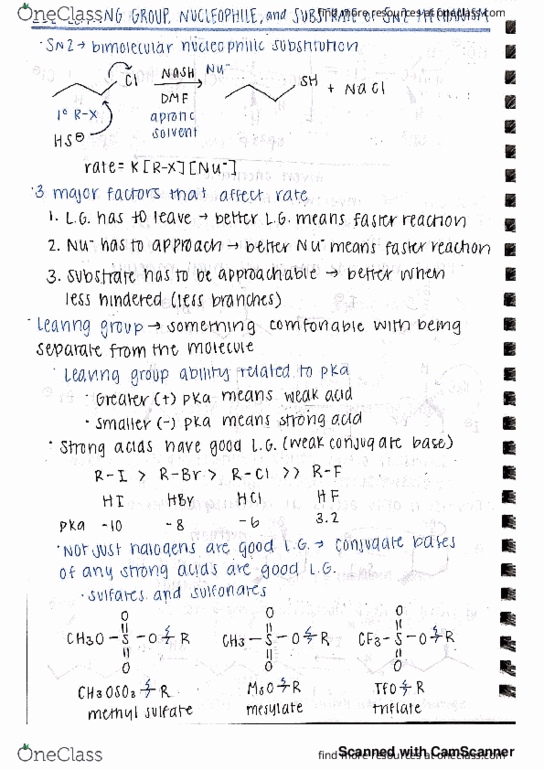 OneClass
NG GROUP, NUCLEOPHILE, and SUBSTRATE OF SN2 MECHANISM
find more resources at oneclass.com
· SN2 → bimolecular nucleophilic substitution
Cl NaSH Nu⁻ SH + NaCl
DMF
1° R-X aprotic
HS⊖ solvent
rate = K[R-X][Nu⁻]
· 3 major factors that affect rate
1. L.G. has to leave → better L.G. means faster reaction
2. Nu⁻ has to approach → better Nu⁻ means faster reaction
3. substrate has to be approachable → better when
less hindered (less branches)
· Leaving group → something comfortable with being
separate from the molecule
· Leaving group ability related to pka
· Greater (+) pka means weak acid
· smaller (-) pka means strong acid
· Strong acids have good L.G. (weak conjugate base)
R-I > R-Br > R-Cl >> R-F
HI HBr HCl HF
pka -10 -8 -6 3.2
· Not just halogens are good L.G. → conjugate bases
of any strong acids are good L.G.
· sulfates and sulfonates
O O O
CH3O-S-O-R CH3-S-O-R CF3-S-O-R
O O O
CH3OSO3-R MsO-R TfO-R
methyl sulfate mesylate triflate
Scanned with CamScanner
OneClass
find more resources at oneclass.com